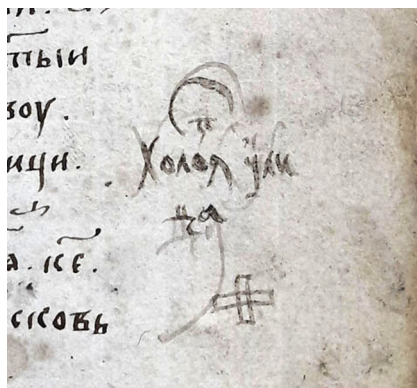 тыи
зоу.
ици.
а. к҃е.
сковь
Холоя ули
ца